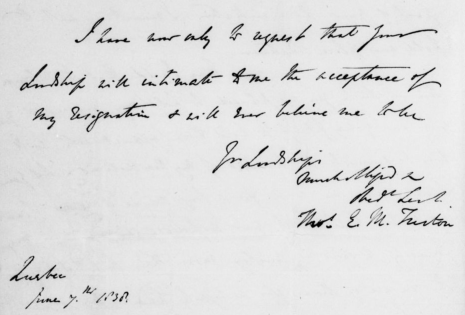 I have now only to request that your
Lordship will intimate to me the acceptance of
my resignation & will ever believe me to be
Yr Lordship's
much obliged &
Obedt Servt
Thos. E. M. Turton
Quebec
June 7.th 1838.